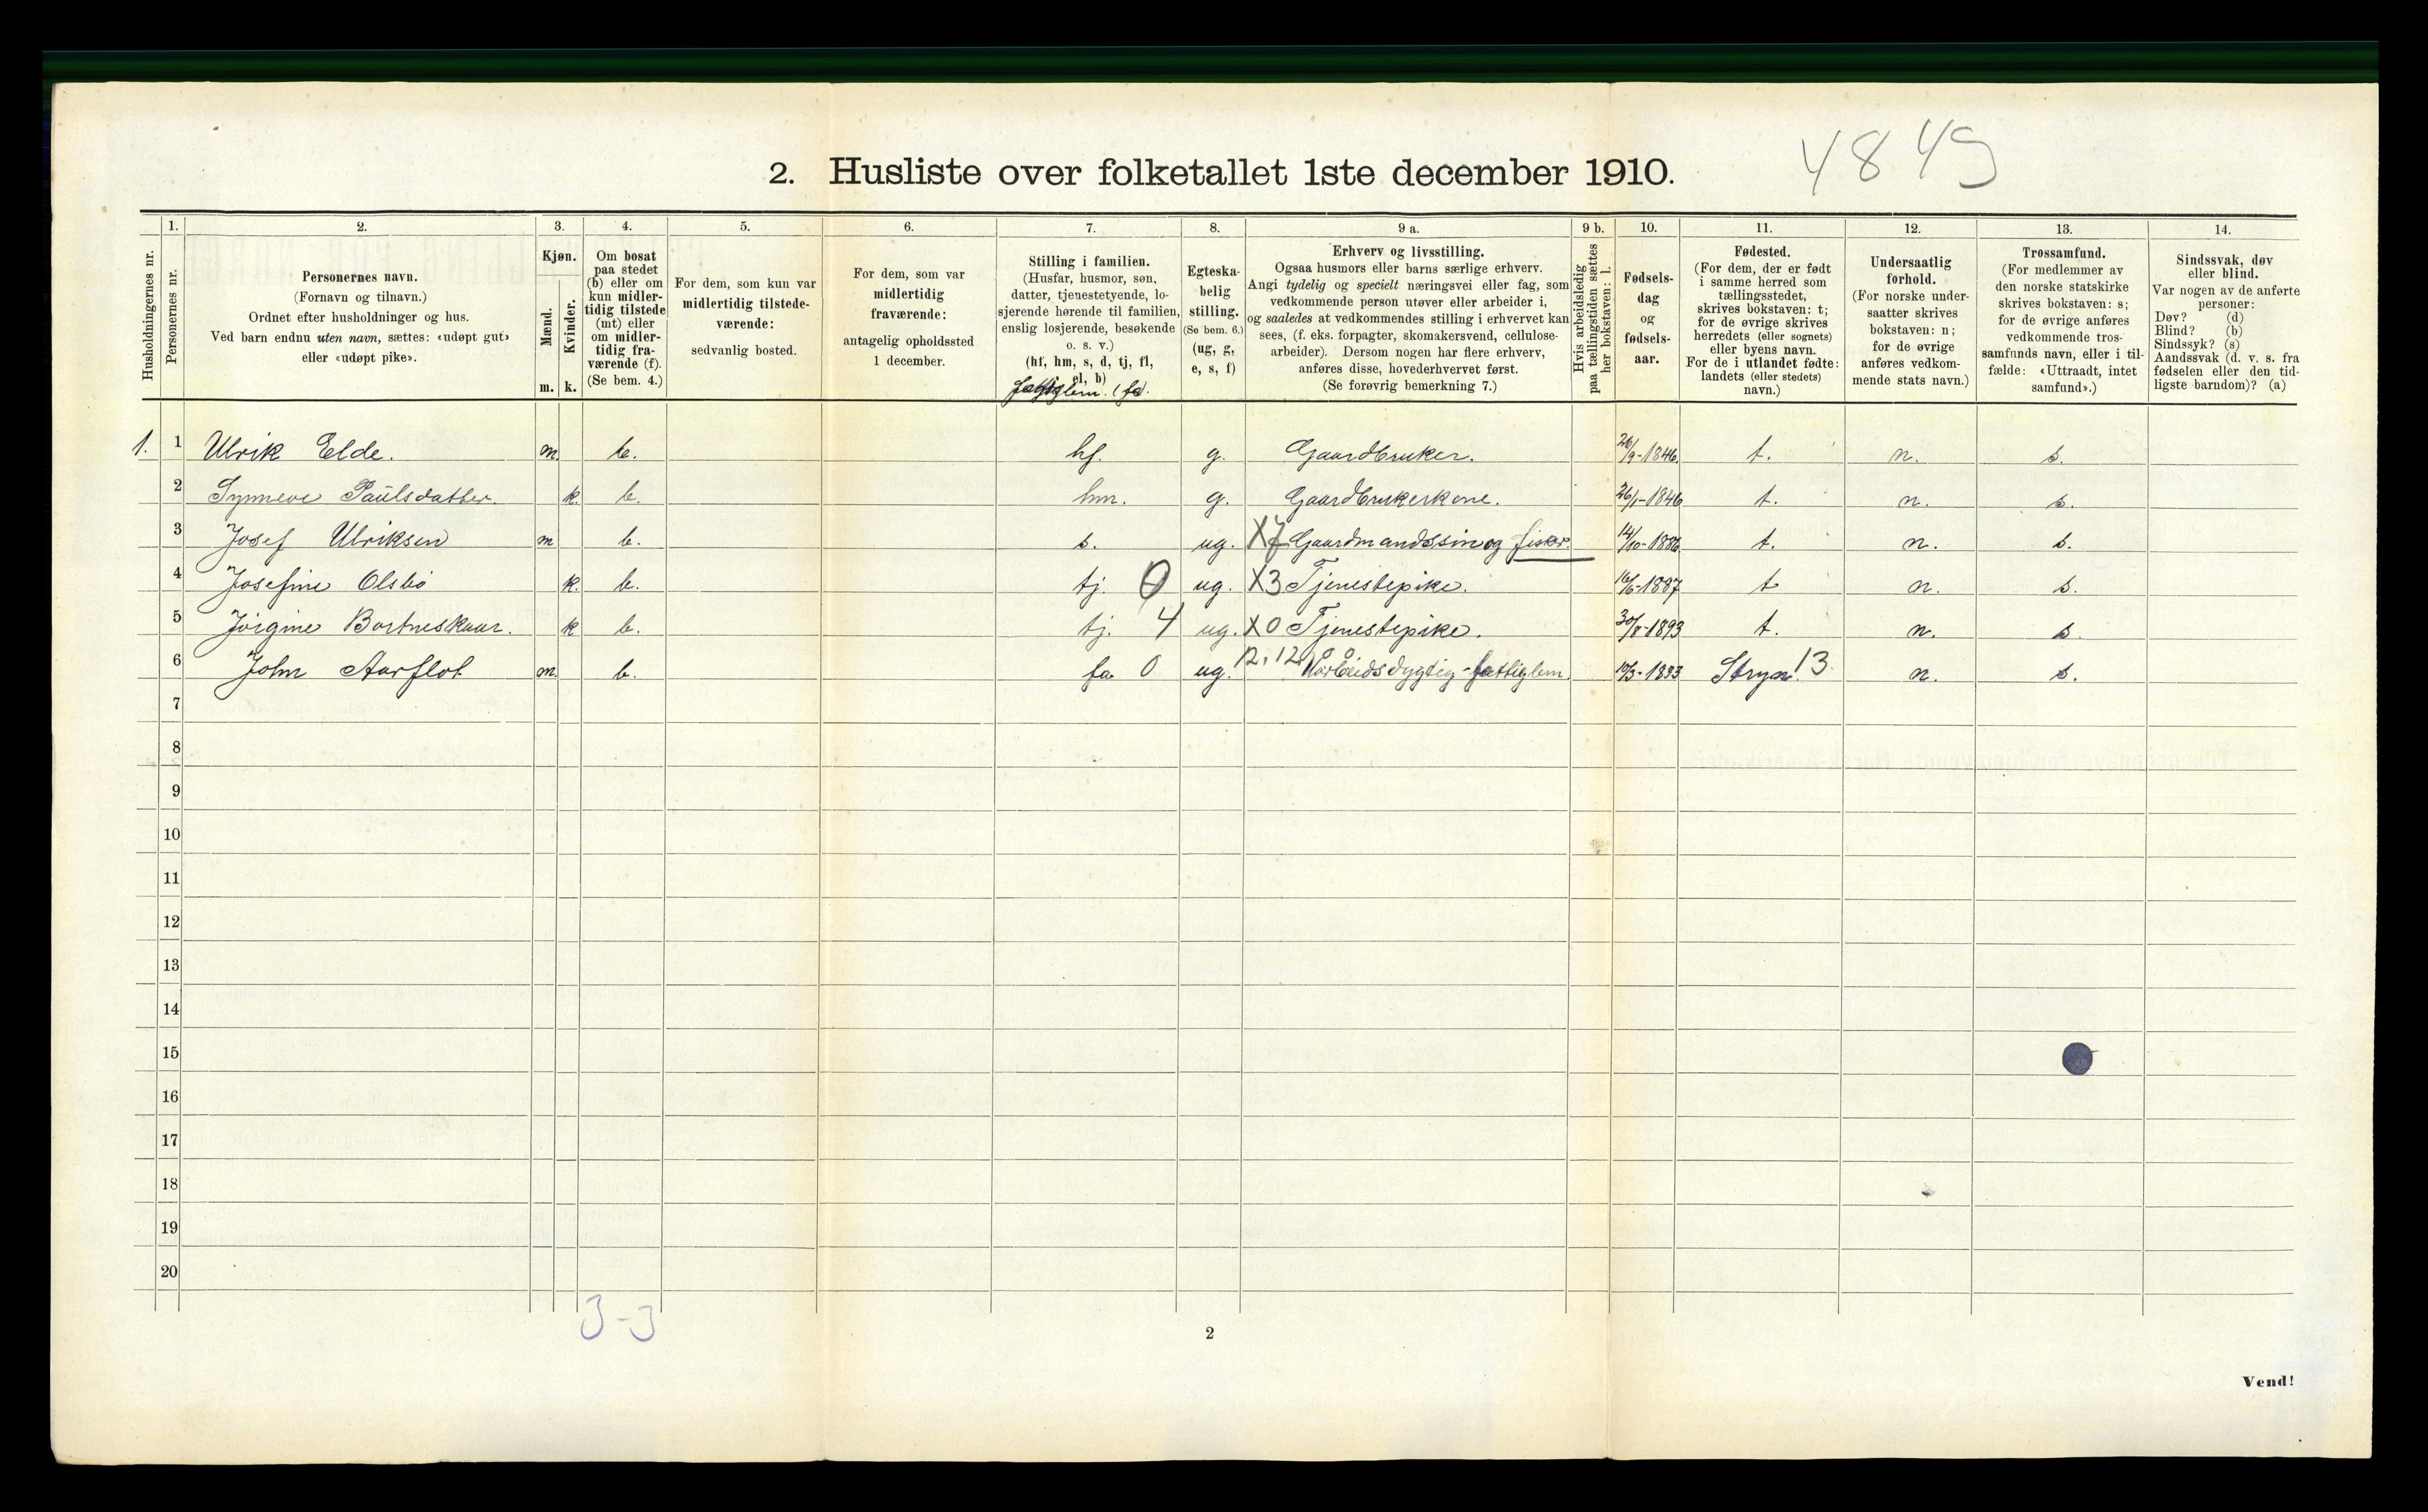 4849
2. Husliste over folketallet 1ste december 1910.
Husholdningernes nr.
1.
Personernes nr.
2.
Personernes navn.
(Fornavn og tilnavn.)
Ordnet efter husholdninger og hus.
Ved barn endnu uten navn, sættes: «udøpt gut»
eller «udøpt pike».
3.
Kjøn.
Mænd.
Kvinder.
m. k.
4.
Om bosat
paa stedet
(b) eller om
kun midler-
tidig tilstede
(mt) eller
om midler-
tidig fra-
værende (f).
(Se bem. 4.)
5.
For dem, som kun var
midlertidig tilstede-
værende:
sedvanlig bosted.
6.
For dem, som var
midlertidig
fraværende:
antagelig opholdssted
1 december.
7.
Stilling i familien.
(Husfar, husmor, søn,
datter, tjenestetyende, lo-
sjerende hørende til familien,
enslig losjerende, besøkende
o. s. v.)
(hf, hm, s, d, tj, fl,
el, b)
fattiglem. (fa).
8.
Egteska-
belig
stilling.
(Se bem. 6.)
(ug, g,
e, s, f)
9 a.
Erhverv og livsstilling.
Ogsaa husmors eller barns særlige erhverv.
Angi tydelig og specielt næringsvei eller fag, som
vedkommende person utøver eller arbeider i,
og saaledes at vedkommendes stilling i erhvervet kan
sees, (f. eks. forpagter, skomakersvend, cellulose-
arbeider). Dersom nogen har flere erhverv,
anføres disse, hovederhvervet først.
(Se forøvrig bemerkning 7.)
9 b.
Hvis arbeidsledig
paa tællingstiden sættes
her bokstaven: l.
10.
Fødsels-
dag
og
fødsels-
aar.
11.
Fødested.
(For dem, der er født
i samme herred som
tællingsstedet,
skrives bokstaven: t;
for de øvrige skrives
herredets (eller sognets)
eller byens navn.
For de i utlandet fødte:
landets (eller stedets)
navn.)
12.
Undersaatlig
forhold.
(For norske under-
saatter skrives
bokstaven: n;
for de øvrige
anføres vedkom-
mende stats navn.)
13.
Trossamfund.
(For medlemmer av
den norske statskirke
skrives bokstaven: s;
for de øvrige anføres
vedkommende tros-
samfunds navn, eller i til-
fælde: «Uttraadt, intet
samfund».)
14.
Sindssvak, døv
eller blind.
Var nogen av de anførte
personer:
Døv? (d)
Blind? (b)
Sindssyk? (s)
Aandssvak (d. v. s. fra
fødselen eller den tid-
ligste barndom)? (a)
1. 1 Ulrik Elde. m. b. hf. g. Gaardbruker. 26/9-1846. t. n. s.
2 Synneve Paulsdatter. k. b. hm. g. Gaardbrukerkone. 26/1-1846 t. n. s.
3 Josef Ulriksen m b. s. ug. X7 Gaardmandssøn og fisker. 14/10-1886. t. n. s.
4 Josefine Olsbö k. b. tj. 0 ug. X3 Tjenestepike. 16/6-1887 t n. s.
5 Jörgine Bortneskaar. k b. tj. 4 ug. X0 Tjenestepike. 30/8-1893 t. n. s.
6 John Aarflot m. b. fa 0 ug. 12,12 Uarbeidsdygtig - fattiglem. 10/3-1833 Stryn. 13 n. s.
7
8
9
10
11
12
13
14
15
16
17
18
19
20
3-3
2
Vend!